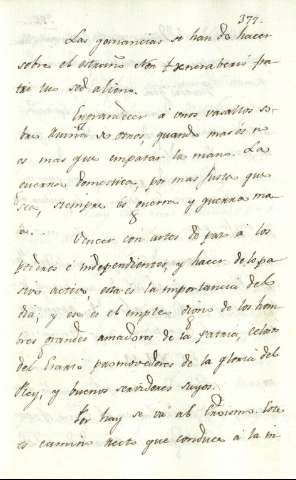 377.
Las ganancias se han de hacer
sobre el
sed aliena.
Engrandecer á unos vasallos so-
bre de otros, quando mas és no
es mas que empatar la mano. La
guerra domestica, por mas justa que
sea, siempre es guerra y guerra ma-
la.
Vencer con artes de paz á los
é independientes, y hacer de lo pa-
sivo activo, esta es la importancia del
dia; y ese es el empleo digno de los hom-
bres grandes amadores de la Patria, celosos
del Erario promovedores de la gloria del
Rey, y buenos servidores suyos.
Por hay se vá al Este
es camino recto que conduce á la in